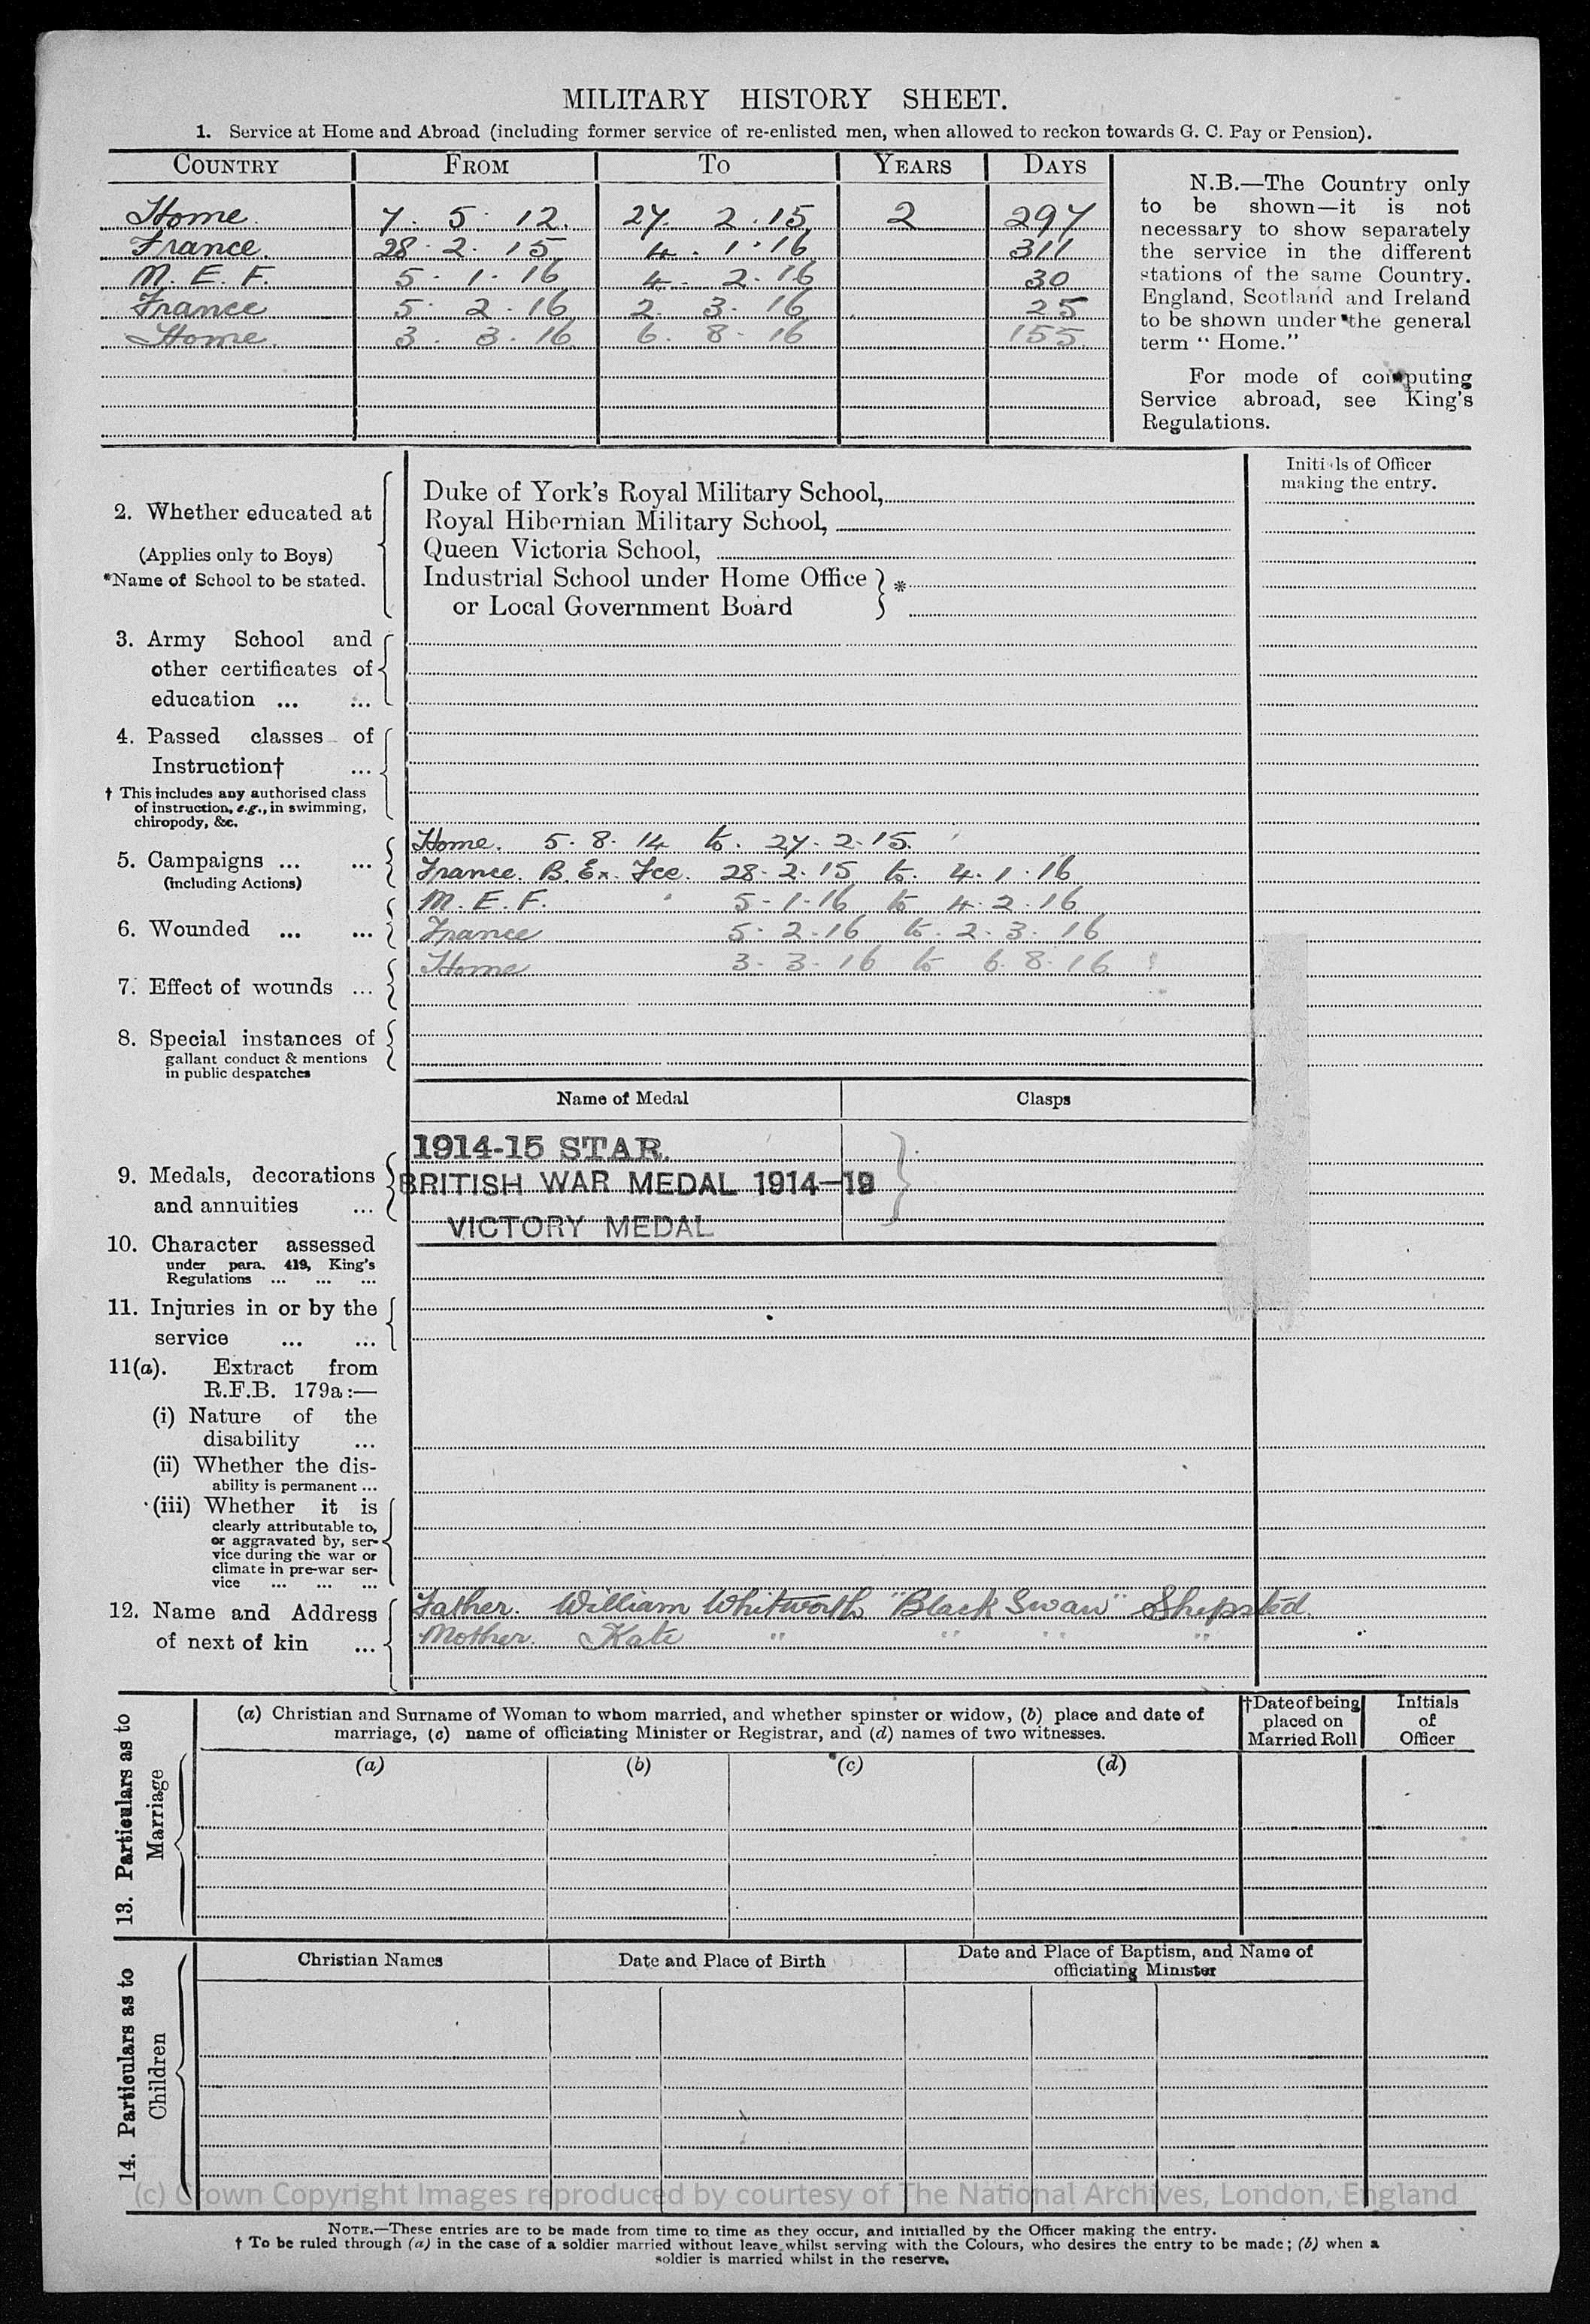 MILITARY HISTORY SHEET.
1. Service at Home and Abroad (including former service of re-enlisted men, when allowed to reckon towards G. C. Pay or Pension).
COUNTRY FROM TO YEARS DAYS
Home. 7. 5. 12. 27. 2. 15 2 297
France. 28. 2. 15 4. 1. 16 311
M. E. F. 5. 1. 16 4. 2. 16 30
France 5. 2. 16 2. 3. 16 25
Home. 3. 3. 16 6. 8. 16 155
N.B.—The Country only
to be shown—it is not
necessary to show separately
the service in the different
stations of the same Country.
England, Scotland and Ireland
to be shown under the general
term “ Home.”
For mode of computing
Service abroad, see King's
Regulations.
Initials of Officer
making the entry.
2. Whether educated at
(Applies only to Boys)
*Name of School to be stated.
Duke of York's Royal Military School,
Royal Hibernian Military School,
Queen Victoria School,
Industrial School under Home Office
or Local Government Board
*
3. Army School and
other certificates of
education ... ...
4. Passed classes of
Instruction† ...
† This includes any authorised class
of instruction, e.g., in swimming,
chiropody, &c.
5. Campaigns ... ...
(including Actions)
Home. 5. 8. 14 to. 27. 2. 15.
France. B. Ex. Fce. 28. 2. 15 to. 4. 1. 16
M. E. F. 5. 1. 16 to 4. 2. 16
6. Wounded ... ...
France 5. 2. 16 to. 2. 3. 16
Home 3. 3. 16 to 6. 8. 16
7. Effect of wounds ...
8. Special instances of
gallant conduct & mentions
in public despatches
Name of Medal Clasps
9. Medals, decorations
and annuities ...
1914-15 STAR.
BRITISH WAR MEDAL 1914-19
VICTORY MEDAL
10. Character assessed
under para. 419, King's
Regulations ... ... ...
11. Injuries in or by the
service ... ...
11(a). Extract from
R.F.B. 179a:—
(i) Nature of the
disability ...
(ii) Whether the dis-
ability is permanent ...
(iii) Whether it is
clearly attributable to,
or aggravated by, ser-
vice during the war or
climate in pre-war ser-
vice ... ... ...
12. Name and Address
of next of kin ...
Father. William Whitworth "Black Swan" Shepsted.
Mother. Kate " " " "
13. Particulars as to
Marriage
(a) Christian and Surname of Woman to whom married, and whether spinster or widow, (b) place and date of
marriage, (c) name of officiating Minister or Registrar, and (d) names of two witnesses.
†Date of being
placed on
Married Roll
Initials
of
Officer
(a) (b) (c) (d)
14. Particulars as to
Children
Christian Names
Date and Place of Birth
Date and Place of Baptism, and Name of
officiating Minister
(c) Crown Copyright Images reproduced by courtesy of The National Archives, London, England
NOTE.—These entries are to be made from time to time as they occur, and initialled by the Officer making the entry.
† To be ruled through (a) in the case of a soldier married without leave whilst serving with the Colours, who desires the entry to be made; (b) when a
soldier is married whilst in the reserve.